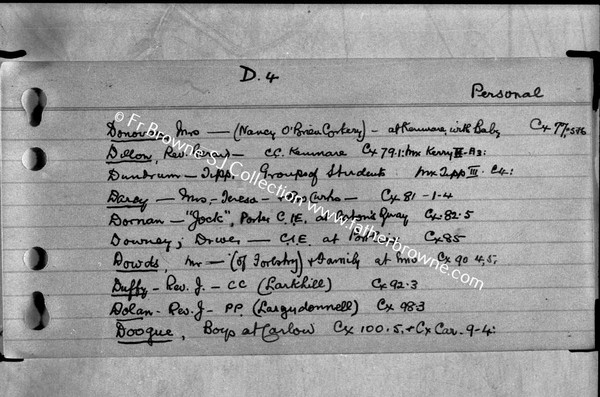 D.4
Personal
Donovan, Mrs — (Nancy O'Brien Corkery) - at Kenmare, with Baby Cx 77, 5+6
Dillon, Rev. Gerard - CC. Kenmare Cx 79.1: Mx Kerry II - A3:
Dundrum - Tipp. Groups of Students Mx Tipp III. C4:
Darcy — Mrs. Teresa - Cx 81 - 1-4
Dornan - "Jock", Porter C.I.E. at Quay Cx 82.5
Downey, Driver - C.I.E. at Cx 85
Dowds, Mr - (of Forestry) & Family at Cx 90 4,5,
Duffy - Rev. J. - CC (Larkhill) Cx 92.3
Dolan - Rev. J - PP. (Largydonnell) Cx 98.3
Doogue, Boys at Carlow Cx 100.5. + Cx Car. 9-4:
© Fr Browne SJ Collection www.fatherbrowne.com